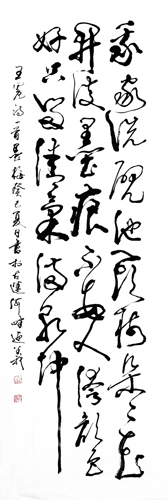 我家洗硯池頭樹朵々花
开淡墨痕不要人誇顏色
好只留清氣滿乾坤
王冕詩一首墨梅癸巳夏月書於古運河畔